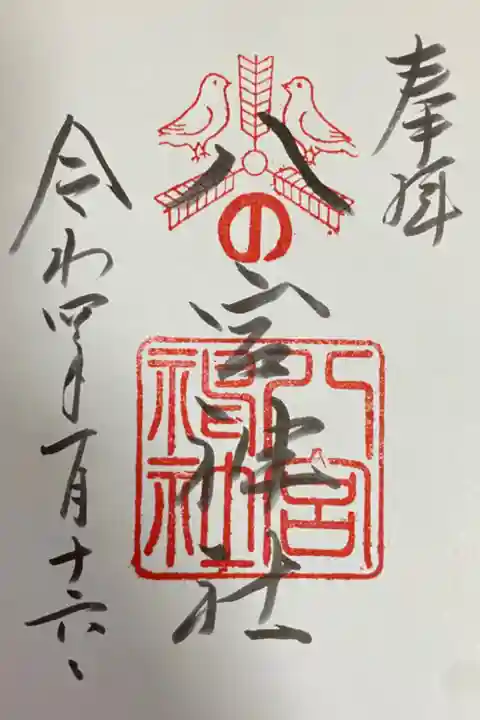 奉拝
八の宮神社
八宮
神社
令和四年一月十六日